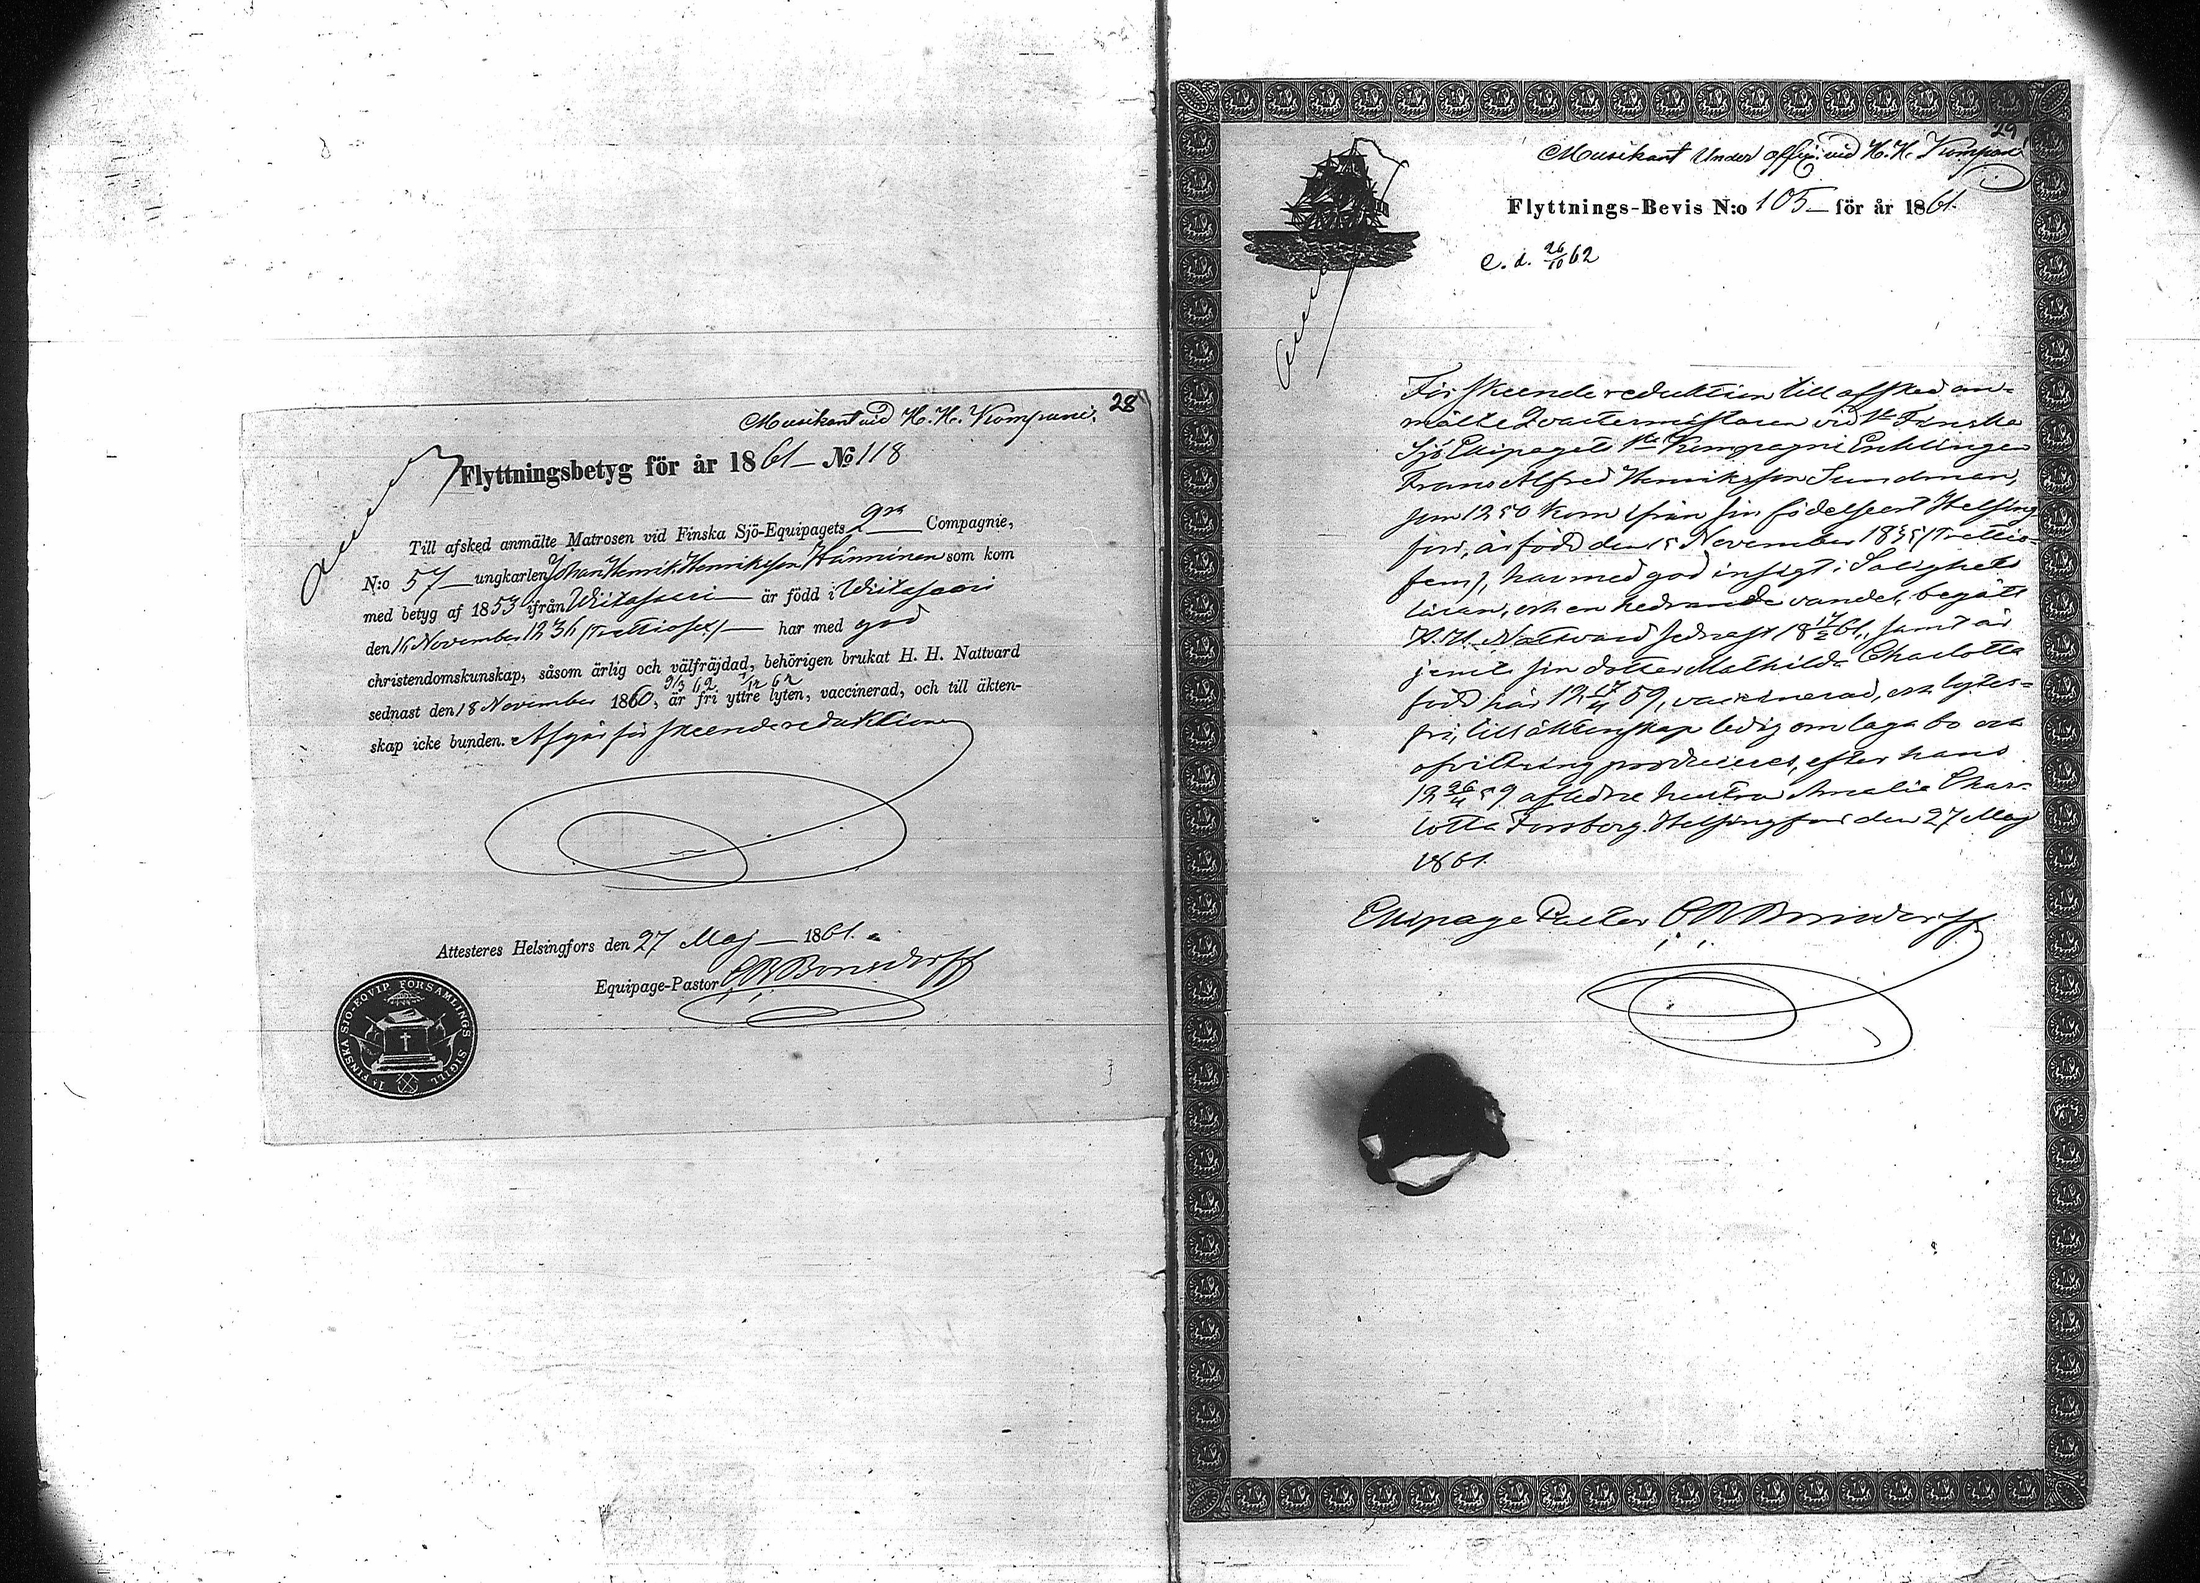 28
Musikant vid H. H. Kompani.
Flyttningsbetyg för år 1861 — No 118
Till afsked anmälte Matrosen vid Finska Sjö-Equipagets 2ra Compagnie,
N:o 57 — ungkarlen Johan Henrik Henriksson Hänninen som kom
med betyg af 1853 ifrån Wiitasaari — är född i Wiitasaari
den 16 November 1836 (Trettiosex) — har med god
christendomskunskap, såsom ärlig och välfräjdad, behörigen brukat H. H. Nattvard
9/3 62 7/12 62
sednast den 18 November 1860, är fri yttre lyten, vaccinerad, och till äkten-
skap icke bunden. Afgår för skeende reduktion
Attesteres Helsingfors den 27 Maj — 1861.
Equipage-Pastor C R Bonsdorff
1A FINSKA SJÖ-EQVIP. FÖRSAMLINGS SIGILL
29
Musikant Under offic: vid H. H. Kompani
Flyttnings-Bevis N:o 105 — för år 1861.
C. d. 26/10 62
För skeende reduktion till afsked an-
mälte Qvartermästaren vid 1sta Finska
Sjö Ekipagets 1sta Kompagni Enklingen
Frans Alfred Henriksson Sundman,
som 1850 kom ifrån sin födelseort Helsing-
fors, är född den 15 November 1835 (Trettio-
fem), har med god insigt i Salighets
läran, och en hedrande vandel, begått
H. H. Nattvard sednast 18 17/2 61, samt är
jemte sin dotter Mathilda Charlotta
född här 18 17/4 59, vaccinerad, och lytes-
fri, till äktenskap ledig om laga bo och
afvittring produceres, efter hans
18 26/4 59 aflidne hustru Amalia Char-
lotta Forsberg. Helsingfors den 27 Maj
1861.
Ekipage Pastor C R Bonsdorff